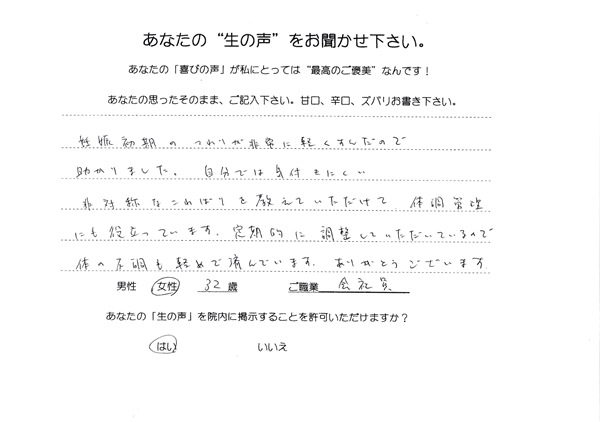 あなたの“生の声”をお聞かせ下さい。
あなたの「喜びの声」が私にとっては“最高のご褒美”なんです！
あなたの思ったそのまま、ご記入下さい。甘口、辛口、ズバリお書き下さい。
妊娠初期のつわりが非常に軽くすんだので
助かりました。自分では気付きにくい
非対称なこわばりを教えていただけて 体調管理
にも役立っています。定期的に調整していただいているので
体の不調も軽めで済んでいます。ありがとうございます
男性 女性 32歳 ご職業 会社員
あなたの「生の声」を院内に掲示することを許可いただけますか？
はい いいえ